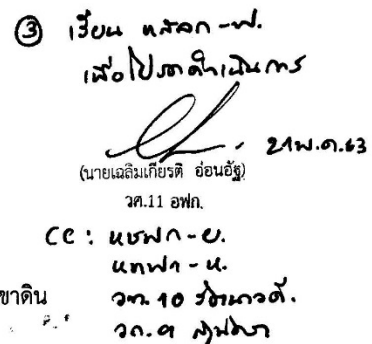 ③ เรียน หสอก-ฟ.
เพื่อโปรดดำเนินการ
21 พ.ค. 63
(นายเฉลิมเกียรติ อ่อนอัฐ)
วศ.11 อฟก.
CC : หชฟก-ย.
หกฟก-ห.
ขาดิน วศ. 10
วก. 9